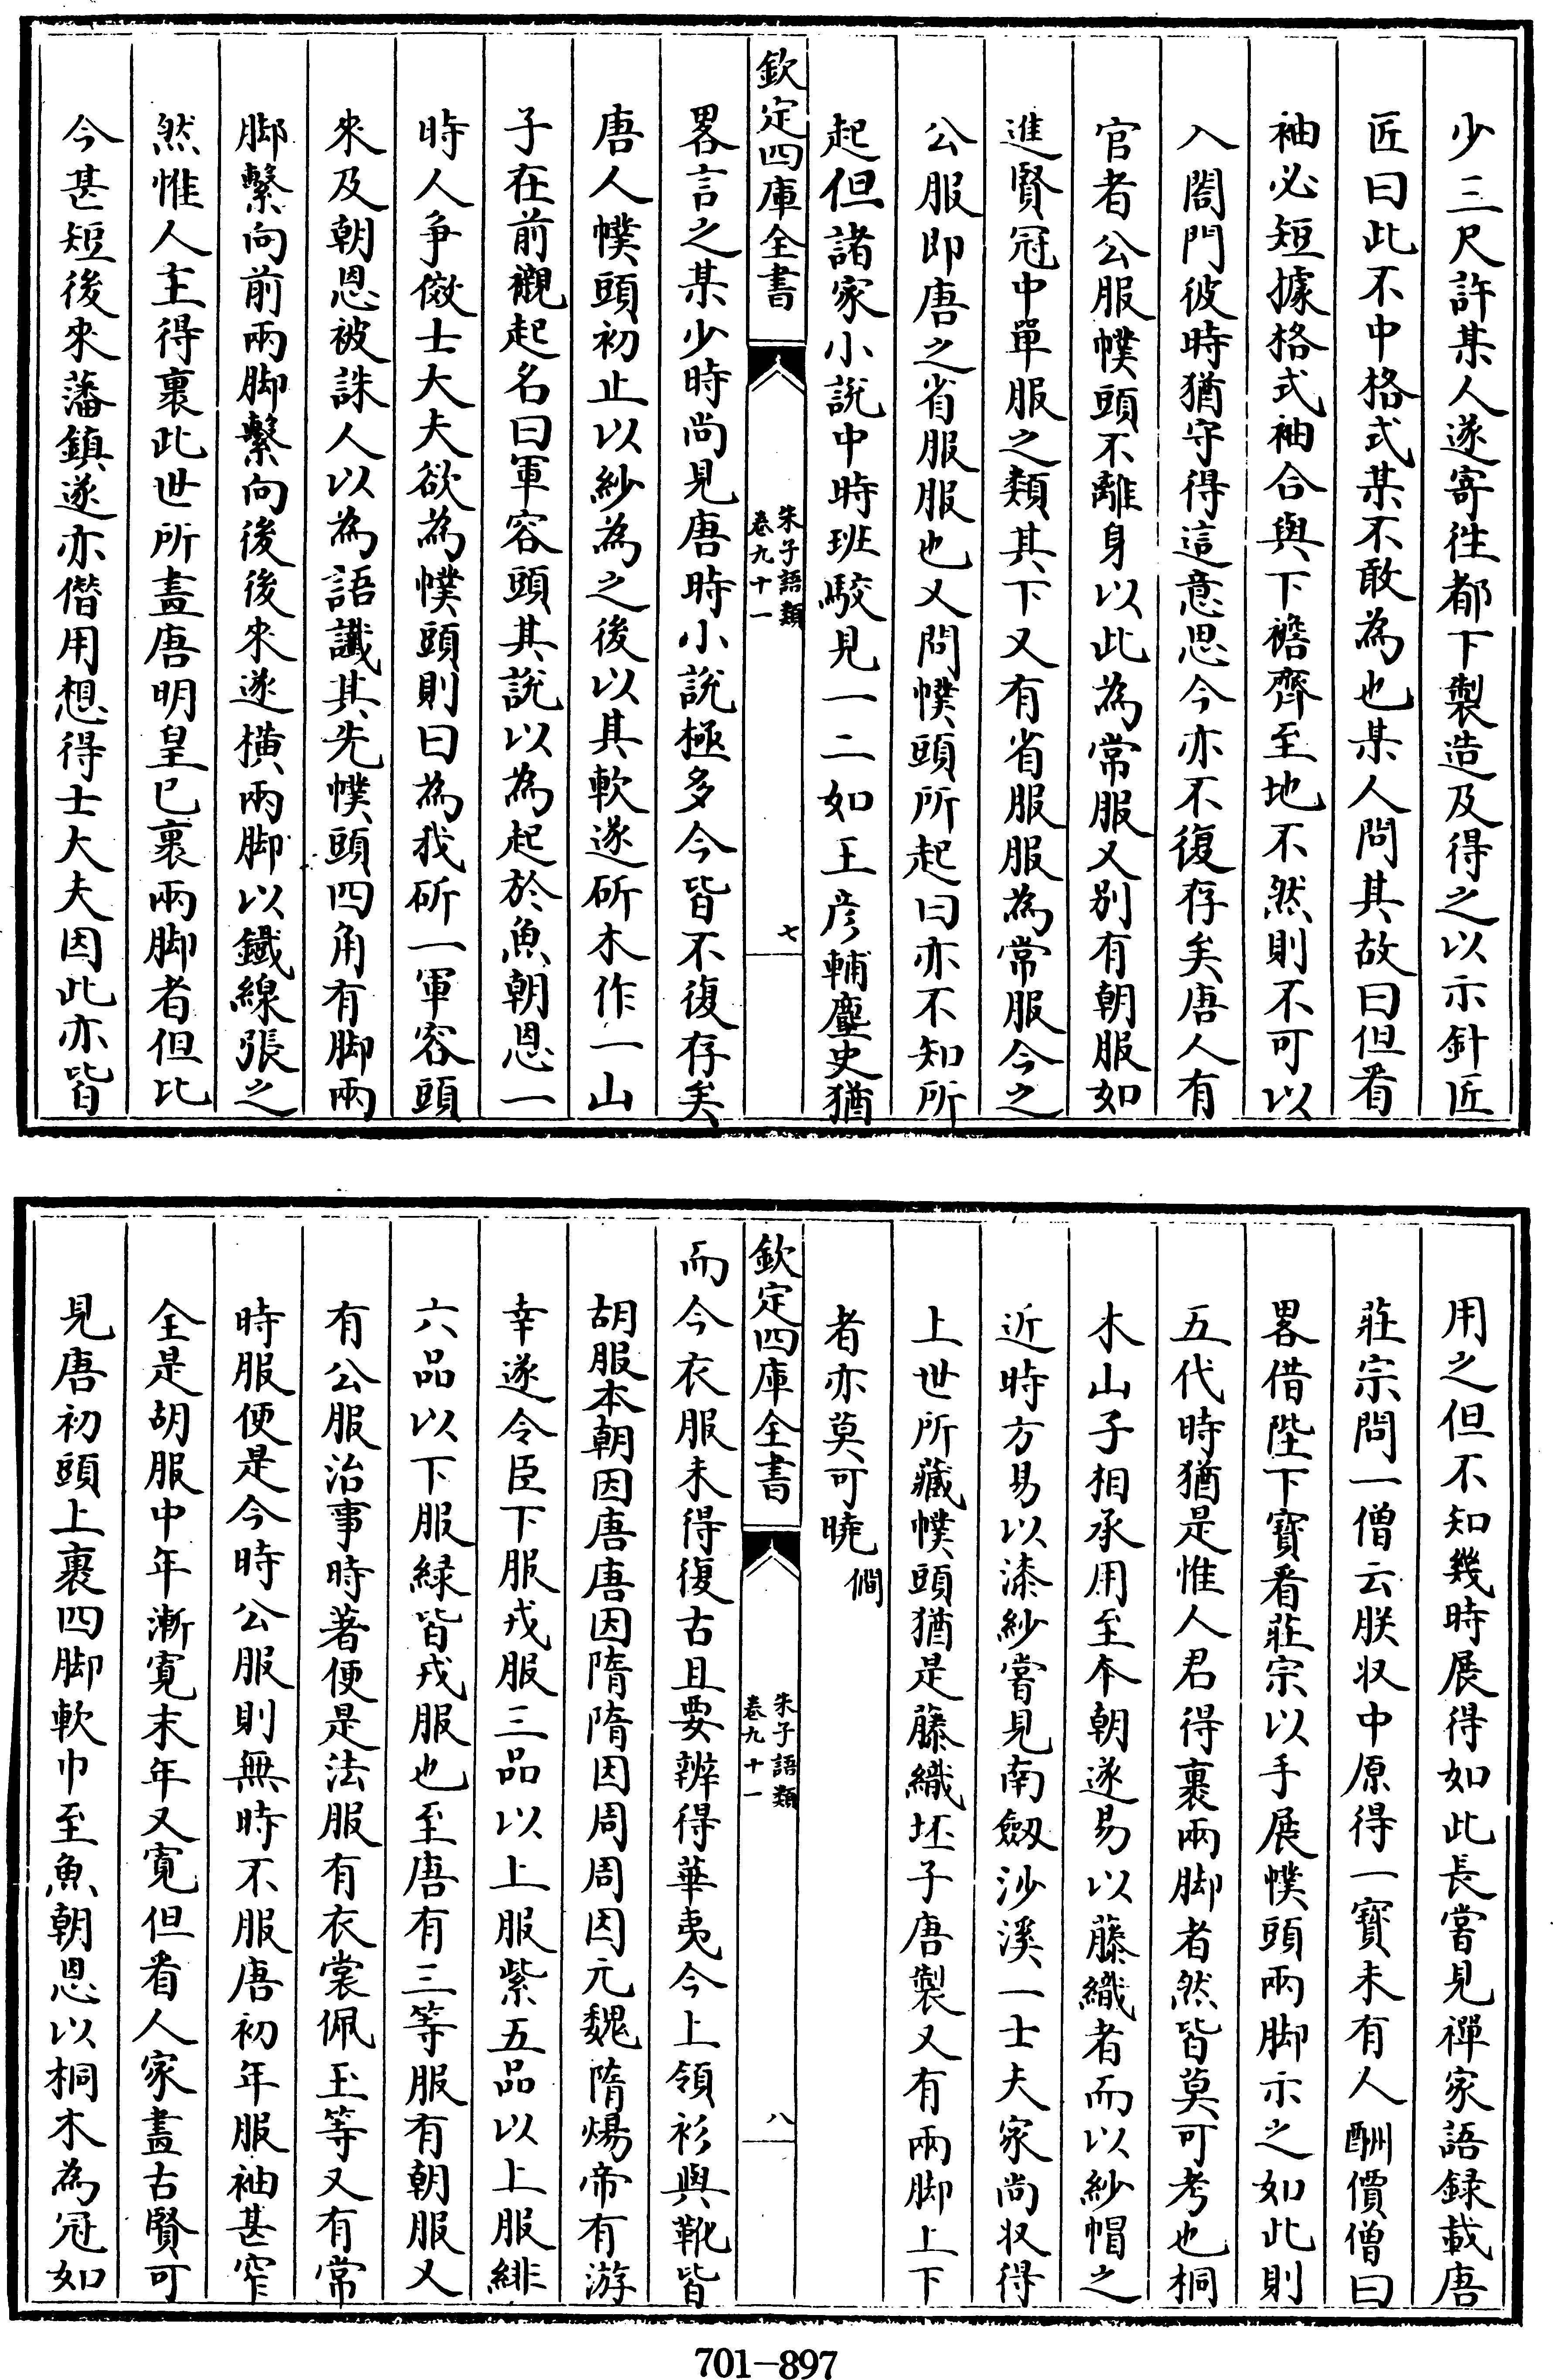 少三尺許某人遂寄徃都下製造及得之以示針匠
匠曰此不中格式某不敢為也某人問其故曰但看
袖必短據格式袖合與下襜齊至地不然則不可以
入閤門彼時猶守得這意思今亦不復存矣唐人有
官者公服幞頭不離身以此為常服又别有朝服如
進賢冠中單服之類其下又有省服服為常服今之
公服即唐之省服服也又問幞頭所起曰亦不知所
起但諸家小說中時班駁見一二如王彦輔麈史猶
欽定四庫全書
朱子語類
卷九十一
七
畧言之某少時尚見唐時小說極多今皆不復存矣
唐人幞頭初止以紗為之後以其軟遂斫木作一山
子在前襯起名曰軍容頭其說以為起於魚朝恩一
時人争傚士大夫欲為幞頭則曰為我斫一軍容頭
來及朝恩被誅人以為語讖其先幞頭四角有脚兩
脚繫向前兩脚繫向後後來遂横兩脚以鐵線張之
然惟人主得裹此世所畫唐明皇已裹兩脚者但比
今甚短後來藩鎮遂亦僭用想得士大夫因此亦皆
用之但不知幾時展得如此長嘗見禪家語録載唐
莊宗問一僧云朕収中原得一寳未有人酬價僧曰
畧借陛下寳看莊宗以手展幞頭兩脚示之如此則
五代時猶是惟人君得裹兩脚者然皆莫可考也桐
木山子相承用至本朝遂易以藤織者而以紗帽之
近時方易以漆紗嘗見南劔沙溪一士夫家尚収得
上世所藏幞頭猶是藤織坯子唐製又有兩脚上下
者亦莫可曉僩
欽定四庫全書
朱子語類
卷九十一
八
而今衣服未得復古且要辨得華夷今上領衫與靴皆
胡服本朝因唐唐因隋隋因周周因元魏隋煬帝有游
幸遂令臣下服戎服三品以上服紫五品以上服緋
六品以下服緑皆戎服也至唐有三等服有朝服又
有公服治事時著便是法服有衣裳佩玉等又有常
時服便是今時公服則無時不服唐初年服袖甚窄
全是胡服中年漸寛末年又寛但看人家畫古賢可
見唐初頭上裹四脚軟巾至魚朝恩以桐木為冠如
701-897